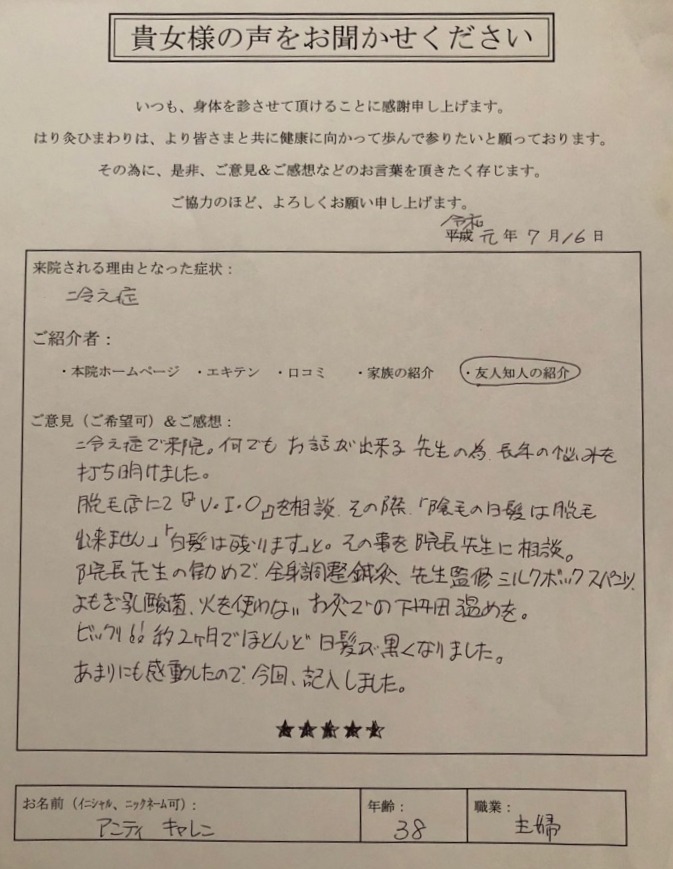 貴女様の声をお聞かせください
いつも、身体を診させて頂けることに感謝申し上げます。
はり灸ひまわりは、より皆さまと共に健康に向かって歩んで参りたいと願っております。
その為に、是非、ご意見＆ご感想などのお言葉を頂きたく存じます。
ご協力のほど、よろしくお願い申し上げます。
令和
平成 元 年 7 月 16 日
来院される理由となった症状：
冷え症
ご紹介者：
・本院ホームページ ・エキテン ・口コミ ・家族の紹介 ・友人知人の紹介
ご意見（ご希望可）＆ご感想：
冷え症で来院。何でも お話が出来る 先生の為、長年の悩みを
打ち明けました。
脱毛店にて『V・I・O』を相談、その際、「陰毛の白髪は脱毛
出来ません」「白髪は残ります」と。その事を院長先生に相談。
院長先生の勧めで、全身調整鍼灸、先生監修ミルクボックスパンツ、
よもぎ乳酸菌、火を使わない お灸での下丹田温めを。
ビックリ!! 約2ヶ月でほとんど白髪が黒くなりました。
あまりにも感動したので、今回、記入しました。
★★★★★
お名前（イニシャル、ニックネーム可）： 年齢： 職業：
アニティ キャレン 38 主婦